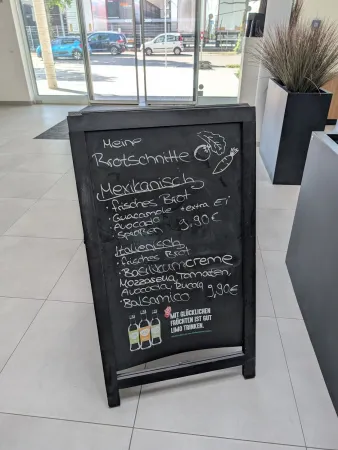 Meine
Brotschnitte
Mexikanisch
· frisches Brot
· Guacamole *extra Ei
· Avocado
· Sprossen 9,90€
Italienisch
· frisches Brot
· Basilikumcreme
Mozzarella, Tomaten,
Avocado, Rucola
· Balsamico 9,90€
MIT GLÜCKLICHEN
FRÜCHTEN IST GUT
LIMO TRINKEN.